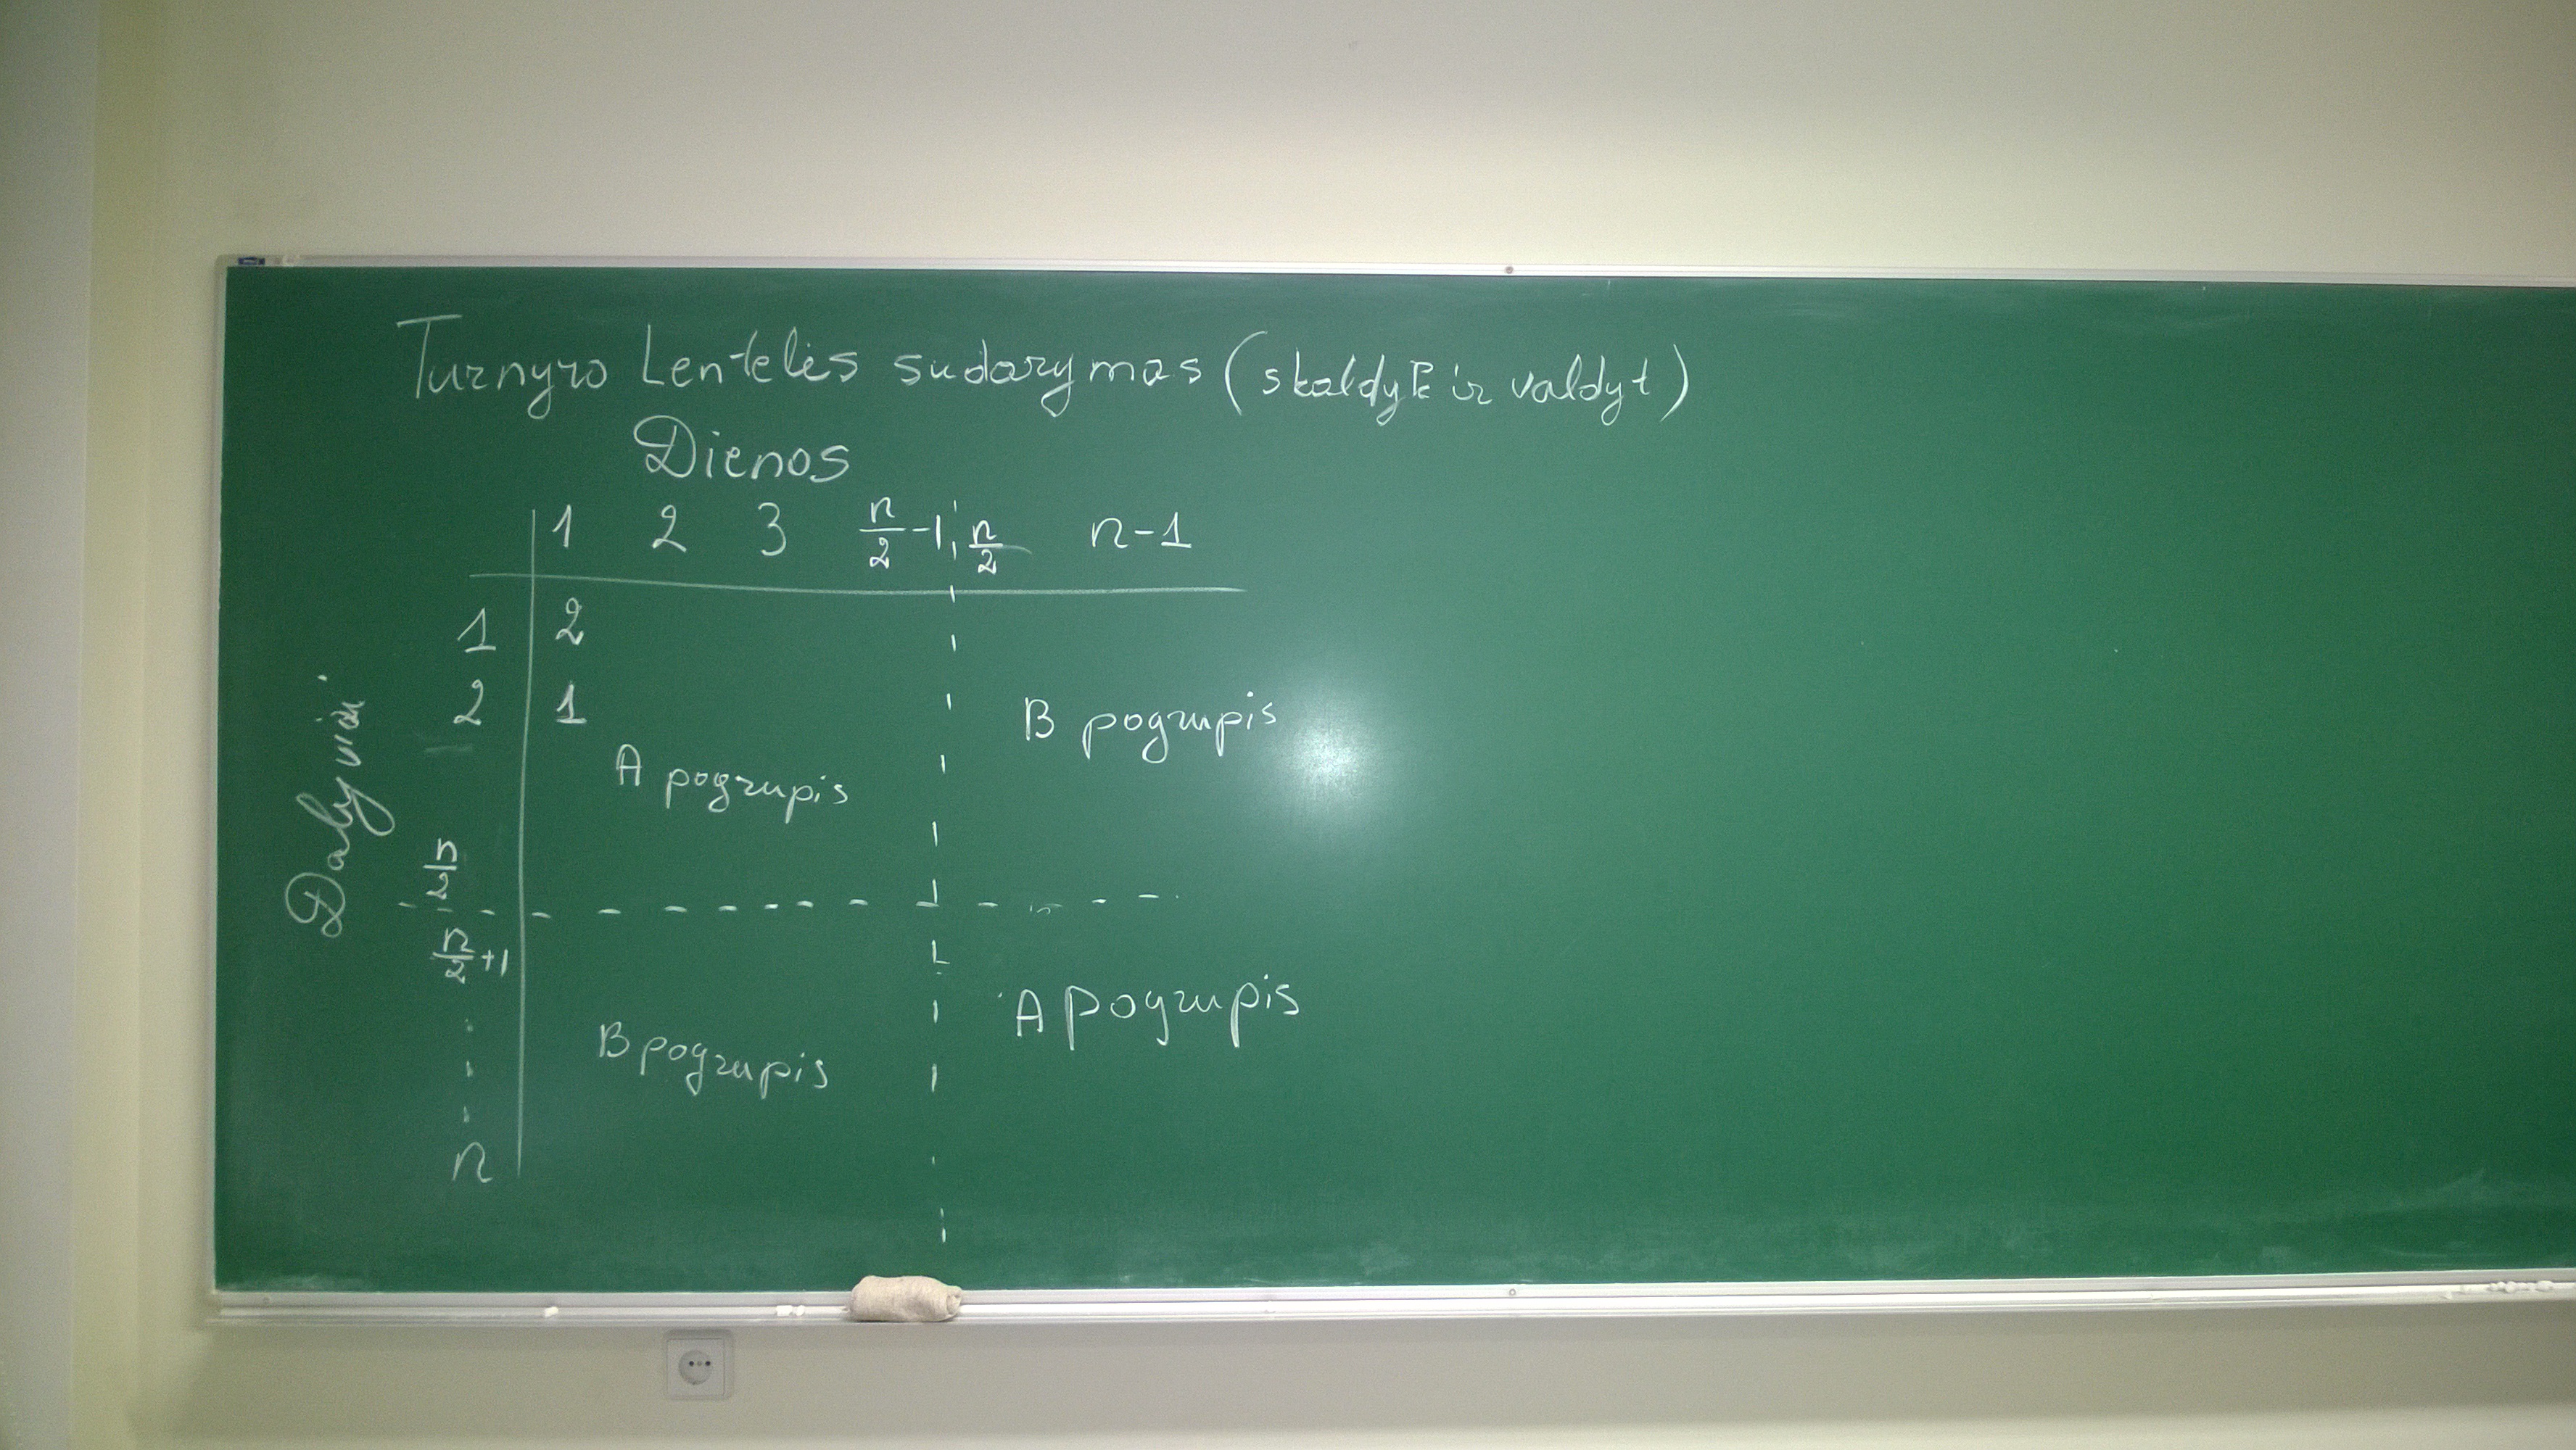 Turnyro Lentelės sudarymas (skaldyk ir valdyt)
Dienos
1 2 3 n/2 -1 n/2 n-1
Dalyviai
1 2
2 1
B pogrupis
A pogrupis
n/2
n/2 +1
A pogrupis
B pogrupis
n